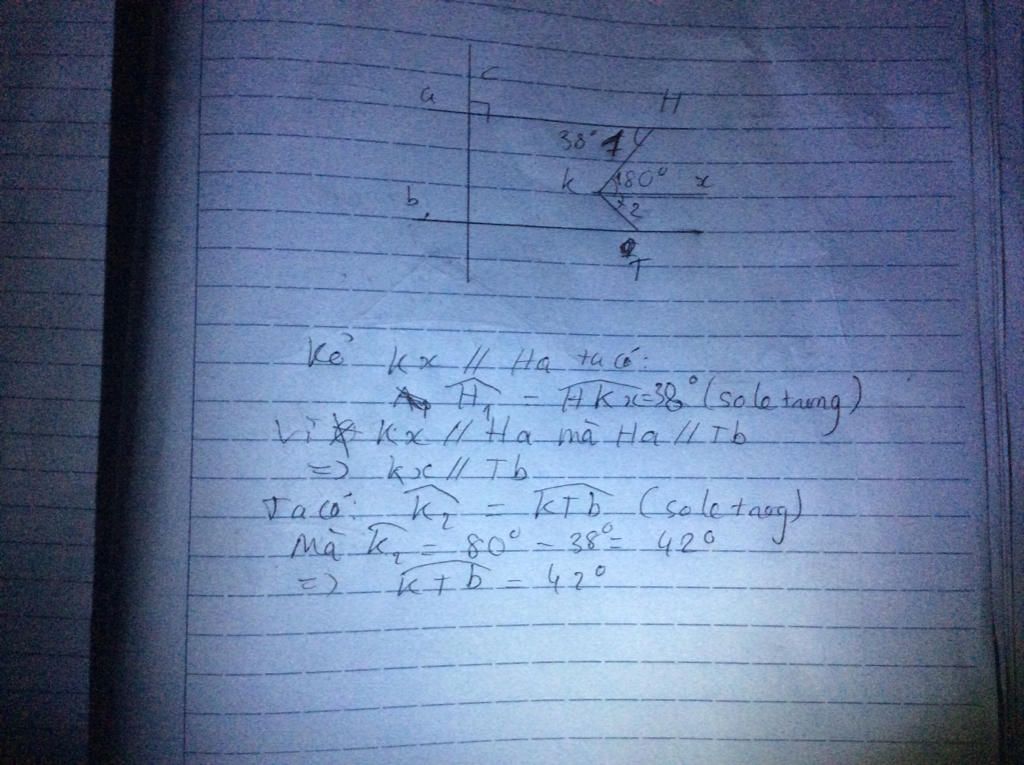 c
a
H
38° 1
K
80°
x
b
2
T
Kẻ Kx // Ha ta có:
H₁ = HKx = 38° (sole trong)
Vì Kx // Ha mà Ha // Tb
=> Kx // Tb
Ta có: K₂ = KTb (sole trong)
Mà K₂ = 80° - 38° = 42°
=> KTb = 42°